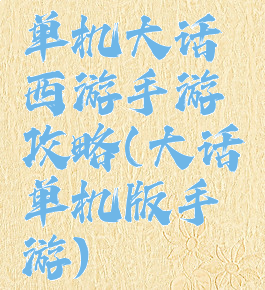 单机大话
西游手游
攻略(大话
单机版手
游)